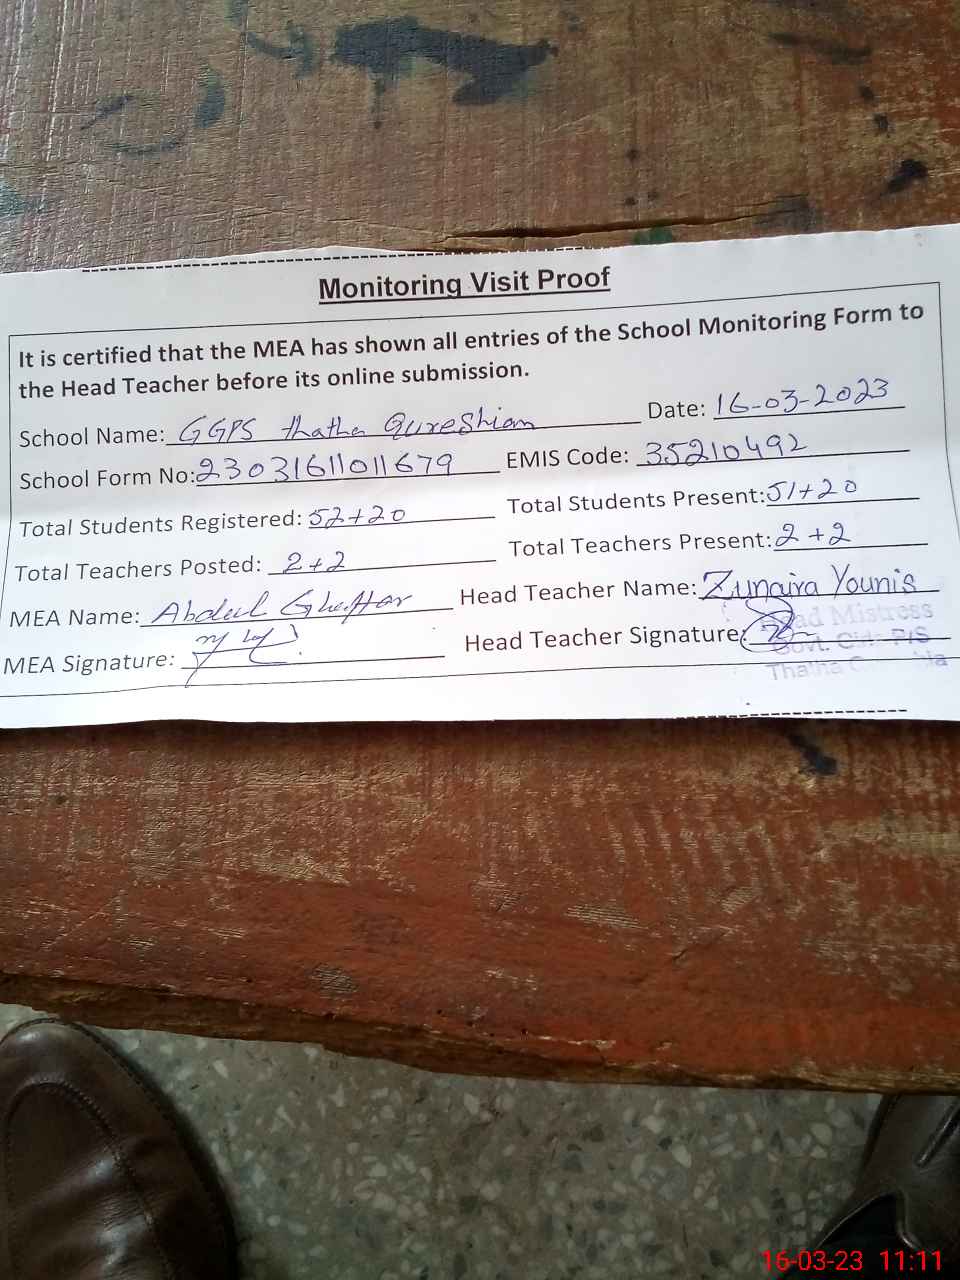 Monitoring Visit Proof
It is certified that the MEA has shown all entries of the School Monitoring Form to
the Head Teacher before its online submission.
School Name: GGPS thatha Qureshian Date: 16-03-2023
School Form No: 23031611011679 EMIS Code: 35210492
Total Students Registered: 52+20 Total Students Present: 51+20
Total Teachers Posted: 2+2 Total Teachers Present: 2+2
MEA Name: Abdul Ghaffar Head Teacher Name: Zunaira Younis
MEA Signature: Head Teacher Signature:
Head Mistress
Govt. P/S
Thatha
16-03-23 11:11